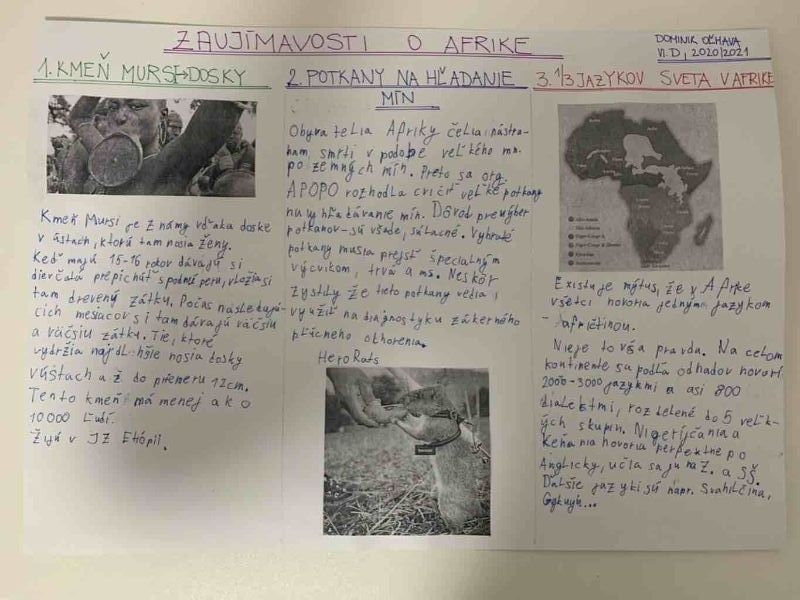 ZAUJÍMAVOSTI O AFRIKE
DOMINIK
VI.D, 2020/2021
1. KMEŇ MURSI→DOSKY
Kmeň Mursi je známy vďaka doske
v ústach, ktorú tam nosia ženy.
Keď majú 15-16 rokov dávajú si
dievčatá prepichúť spodnú peru, vložia si
tam drevený zátku. Počas nasledujú-
cich mesiacov si tam dávajú väčšiu
a väčšiu zátku. Tie, ktoré
vydržia najdlhšie nosia dosky
v ústach až do priemeru 12cm.
Tento kmeň má menej ako
10 000 ľudí.
Žijú v JZ Etiópii.
2. POTKANY NA HĽADANIE
MÍN
Obyvatelia Afriky čelia nástra-
ham smrti v podobe veľkého mn.
pozemných mín. Preto sa org.
APOPO rozhodla cvičiť veľké potkany
na vyhľadávanie mín. Dôvod pre výber
potkanov - sú všade, sú lacné. Vybraté
potkany musia prejsť špeciálnym
výcvikom, trvá 9 ms. Neskôr
zystily že tieto potkany vedia
využiť na diagnostyku zákerného
pľúcneho ochorenia.
HeroRats
3. 1/3 JAZYKOV SVETA V AFRIKE
Existuje mýtus, že v Afrike
všetci hovoria jedným jazykom
- afričtinou.
Nieje to vša pravda. Na celom
kontinente sa podľa odhadov hovorí
2000-3000 jazykmi a asi 800
dialektmi, rozdelené do 5 veľk-
ých skupín. Nigerijčania a
Keňania hovoria perfektne po
Anglicky, učia sa ju na Z. a SŠ.
Ďalšie jazyki sú napr. Svahilčina,